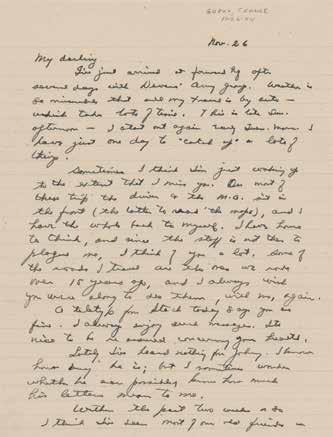 Nov. 26
My darling
I've just arrived at forward Hq after
several days with Devers' Army group. Weather is
so miserable that all my travel is by auto —
which takes lots of time. This is late Sun.
afternoon — I start out again early Tues. morn. I
have just one day to "catch up" a lot of
things.
Sometimes I think I'm just
to the extent that I miss you. On most of
these trips the driver & the M.P. sit in
the front (the latter to read the maps), and I
have the whole back to myself. I have hours
to think, and since the staff is not there to
plague me, I think of you a lot. Some of
the roads I travel are the ones we rode
over 15 years ago, and I always wish
you were along to see them, with me, again.
A teletype from Stack today says you are
fine. I always enjoy such messages. It's
nice to be reassured concerning your health.
Lately I've heard nothing from Johnny. I know
how busy he is; but I sometimes wonder
whether he can possibly know how much
his letters mean to me.
Within the past two weeks or so
I think I've seen most of our old friends in